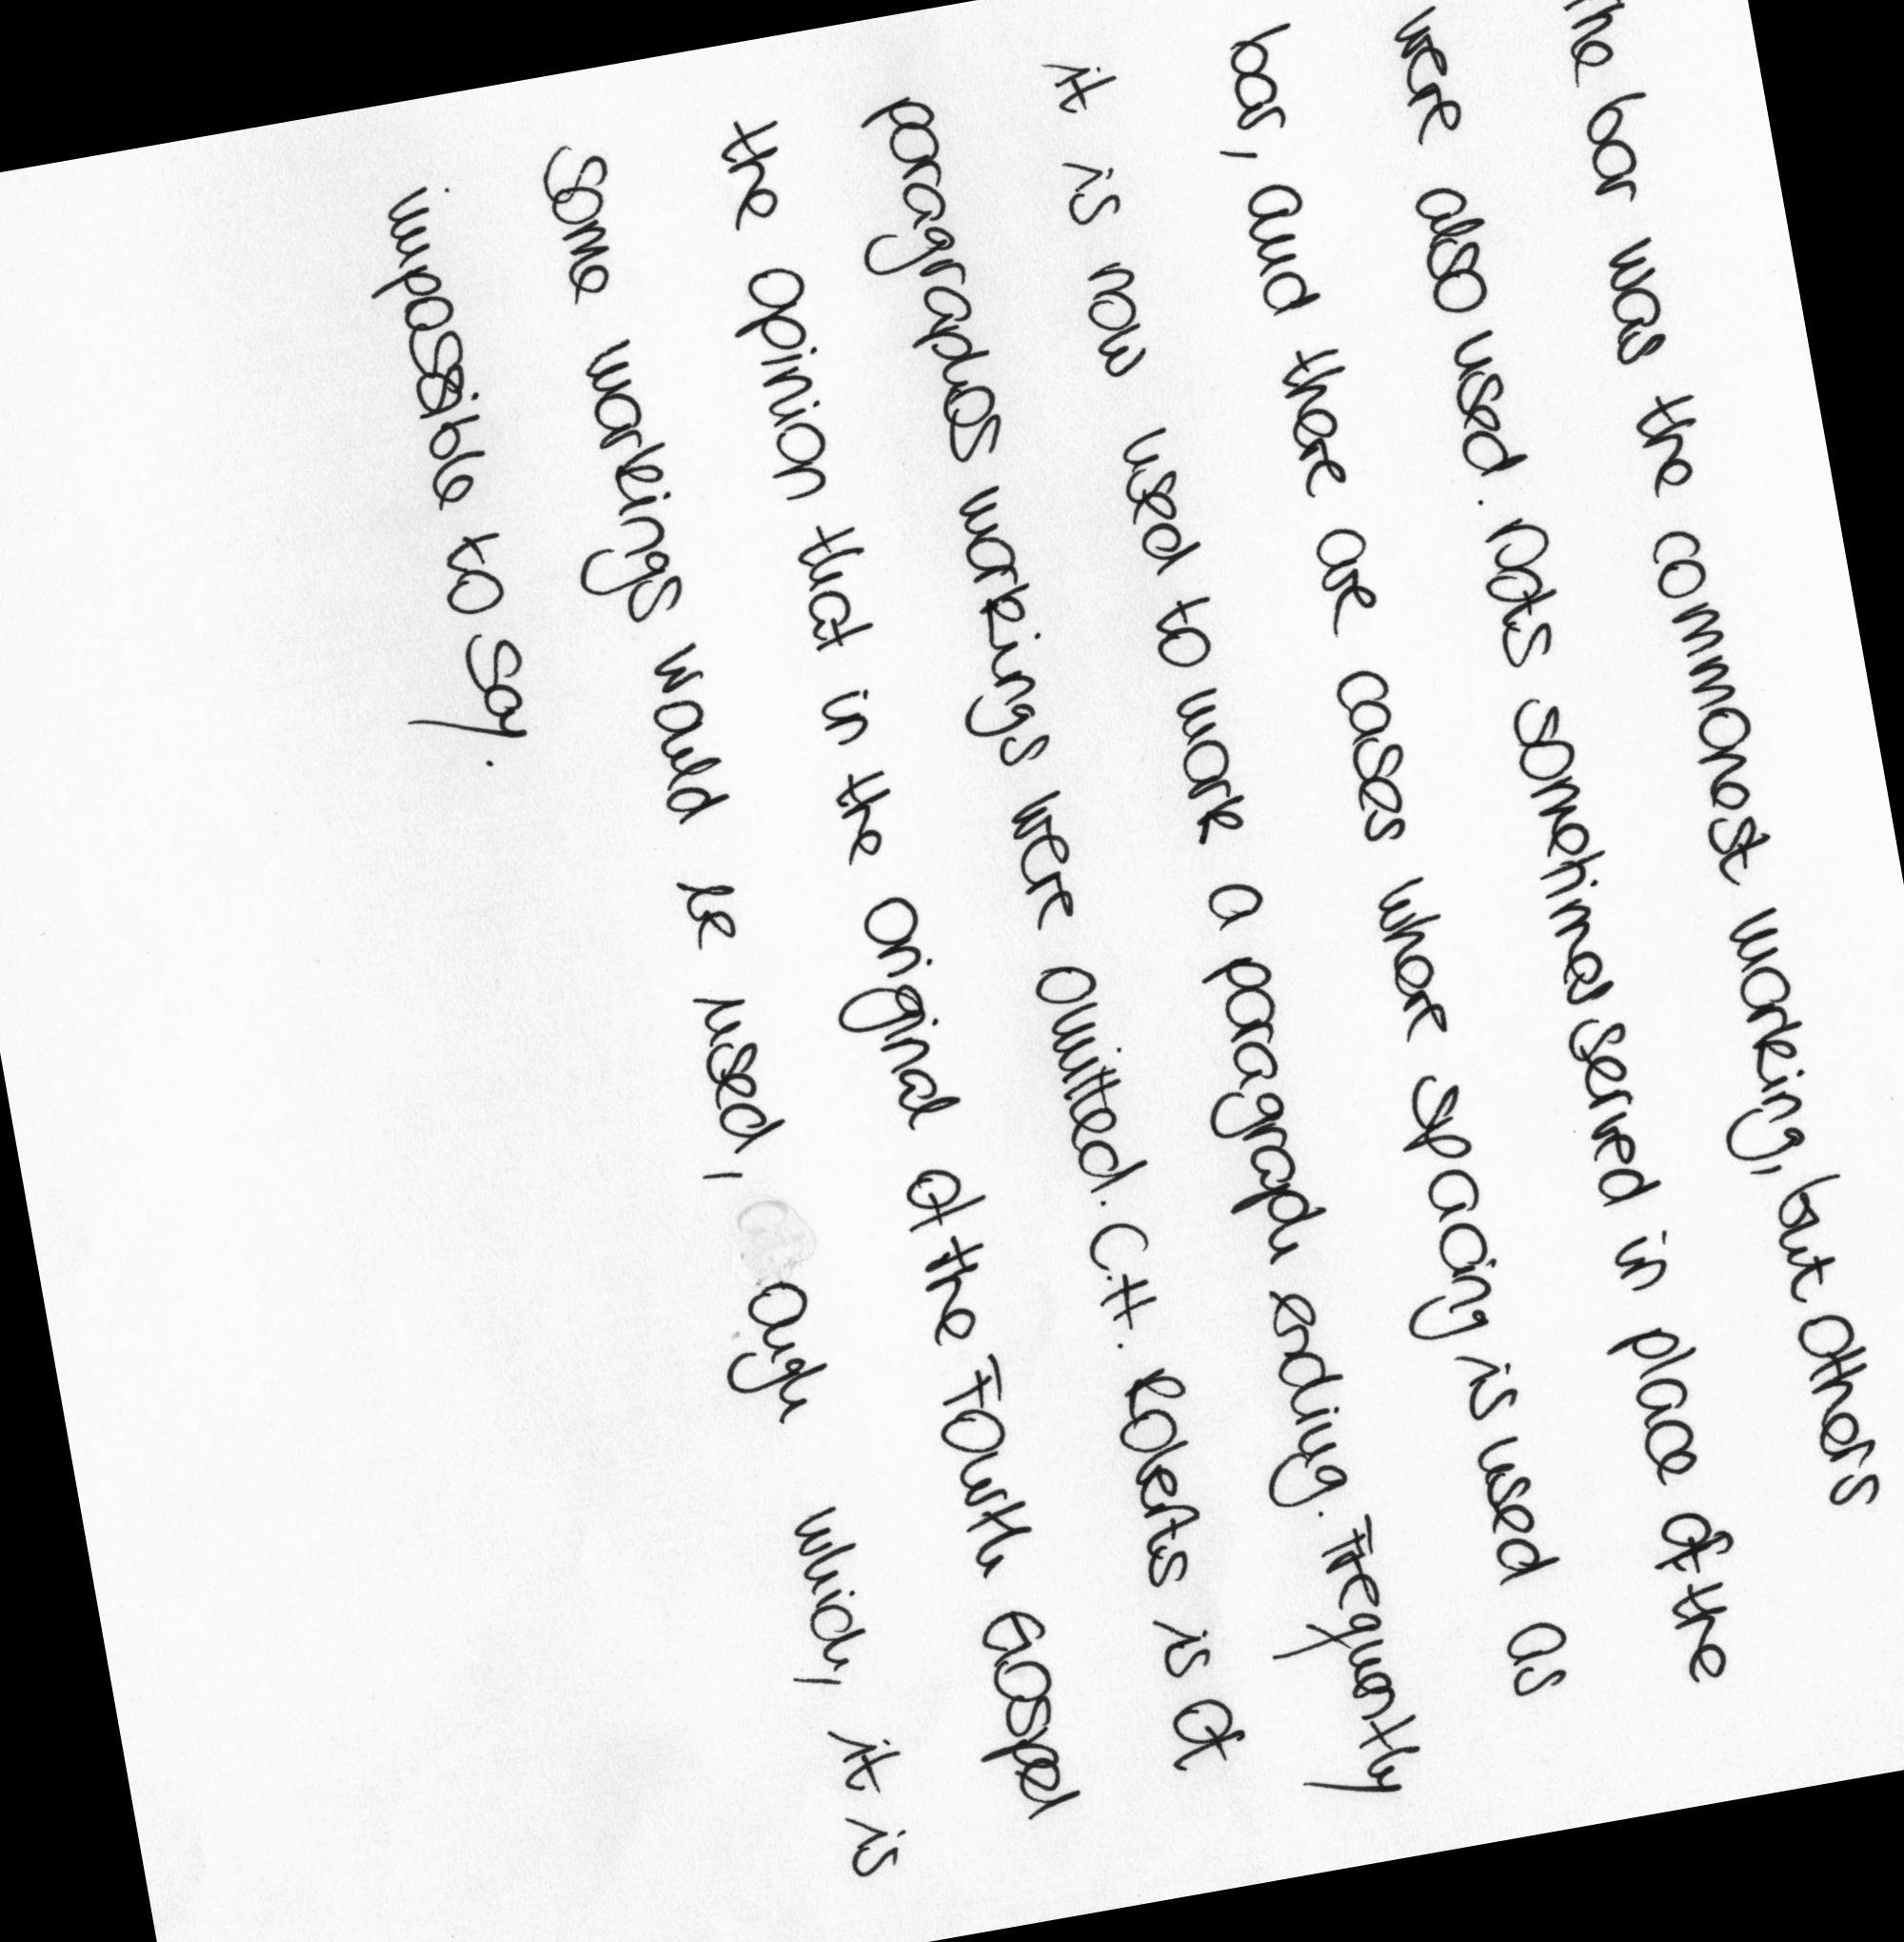 The bar was the commonest marking, but others
were also used. Dots sometimes served in place of the
bar, and there are cases where spacing is used as
it is now used to mark a paragraph ending. Frequently
paragraphos markings were omitted. C.H. Roberts is of
the opinion that in the original of the Fourth Gospel
some markings would be used, ough which, it is
impossible to say.